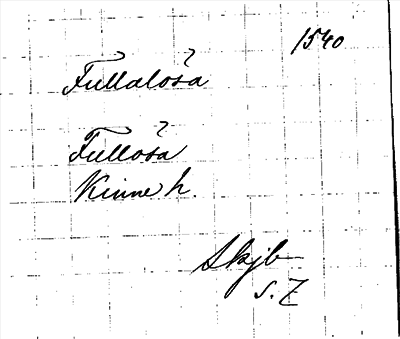 1540
Fullalösa
Fullösa
Kinne h.
Skjb
s. 7